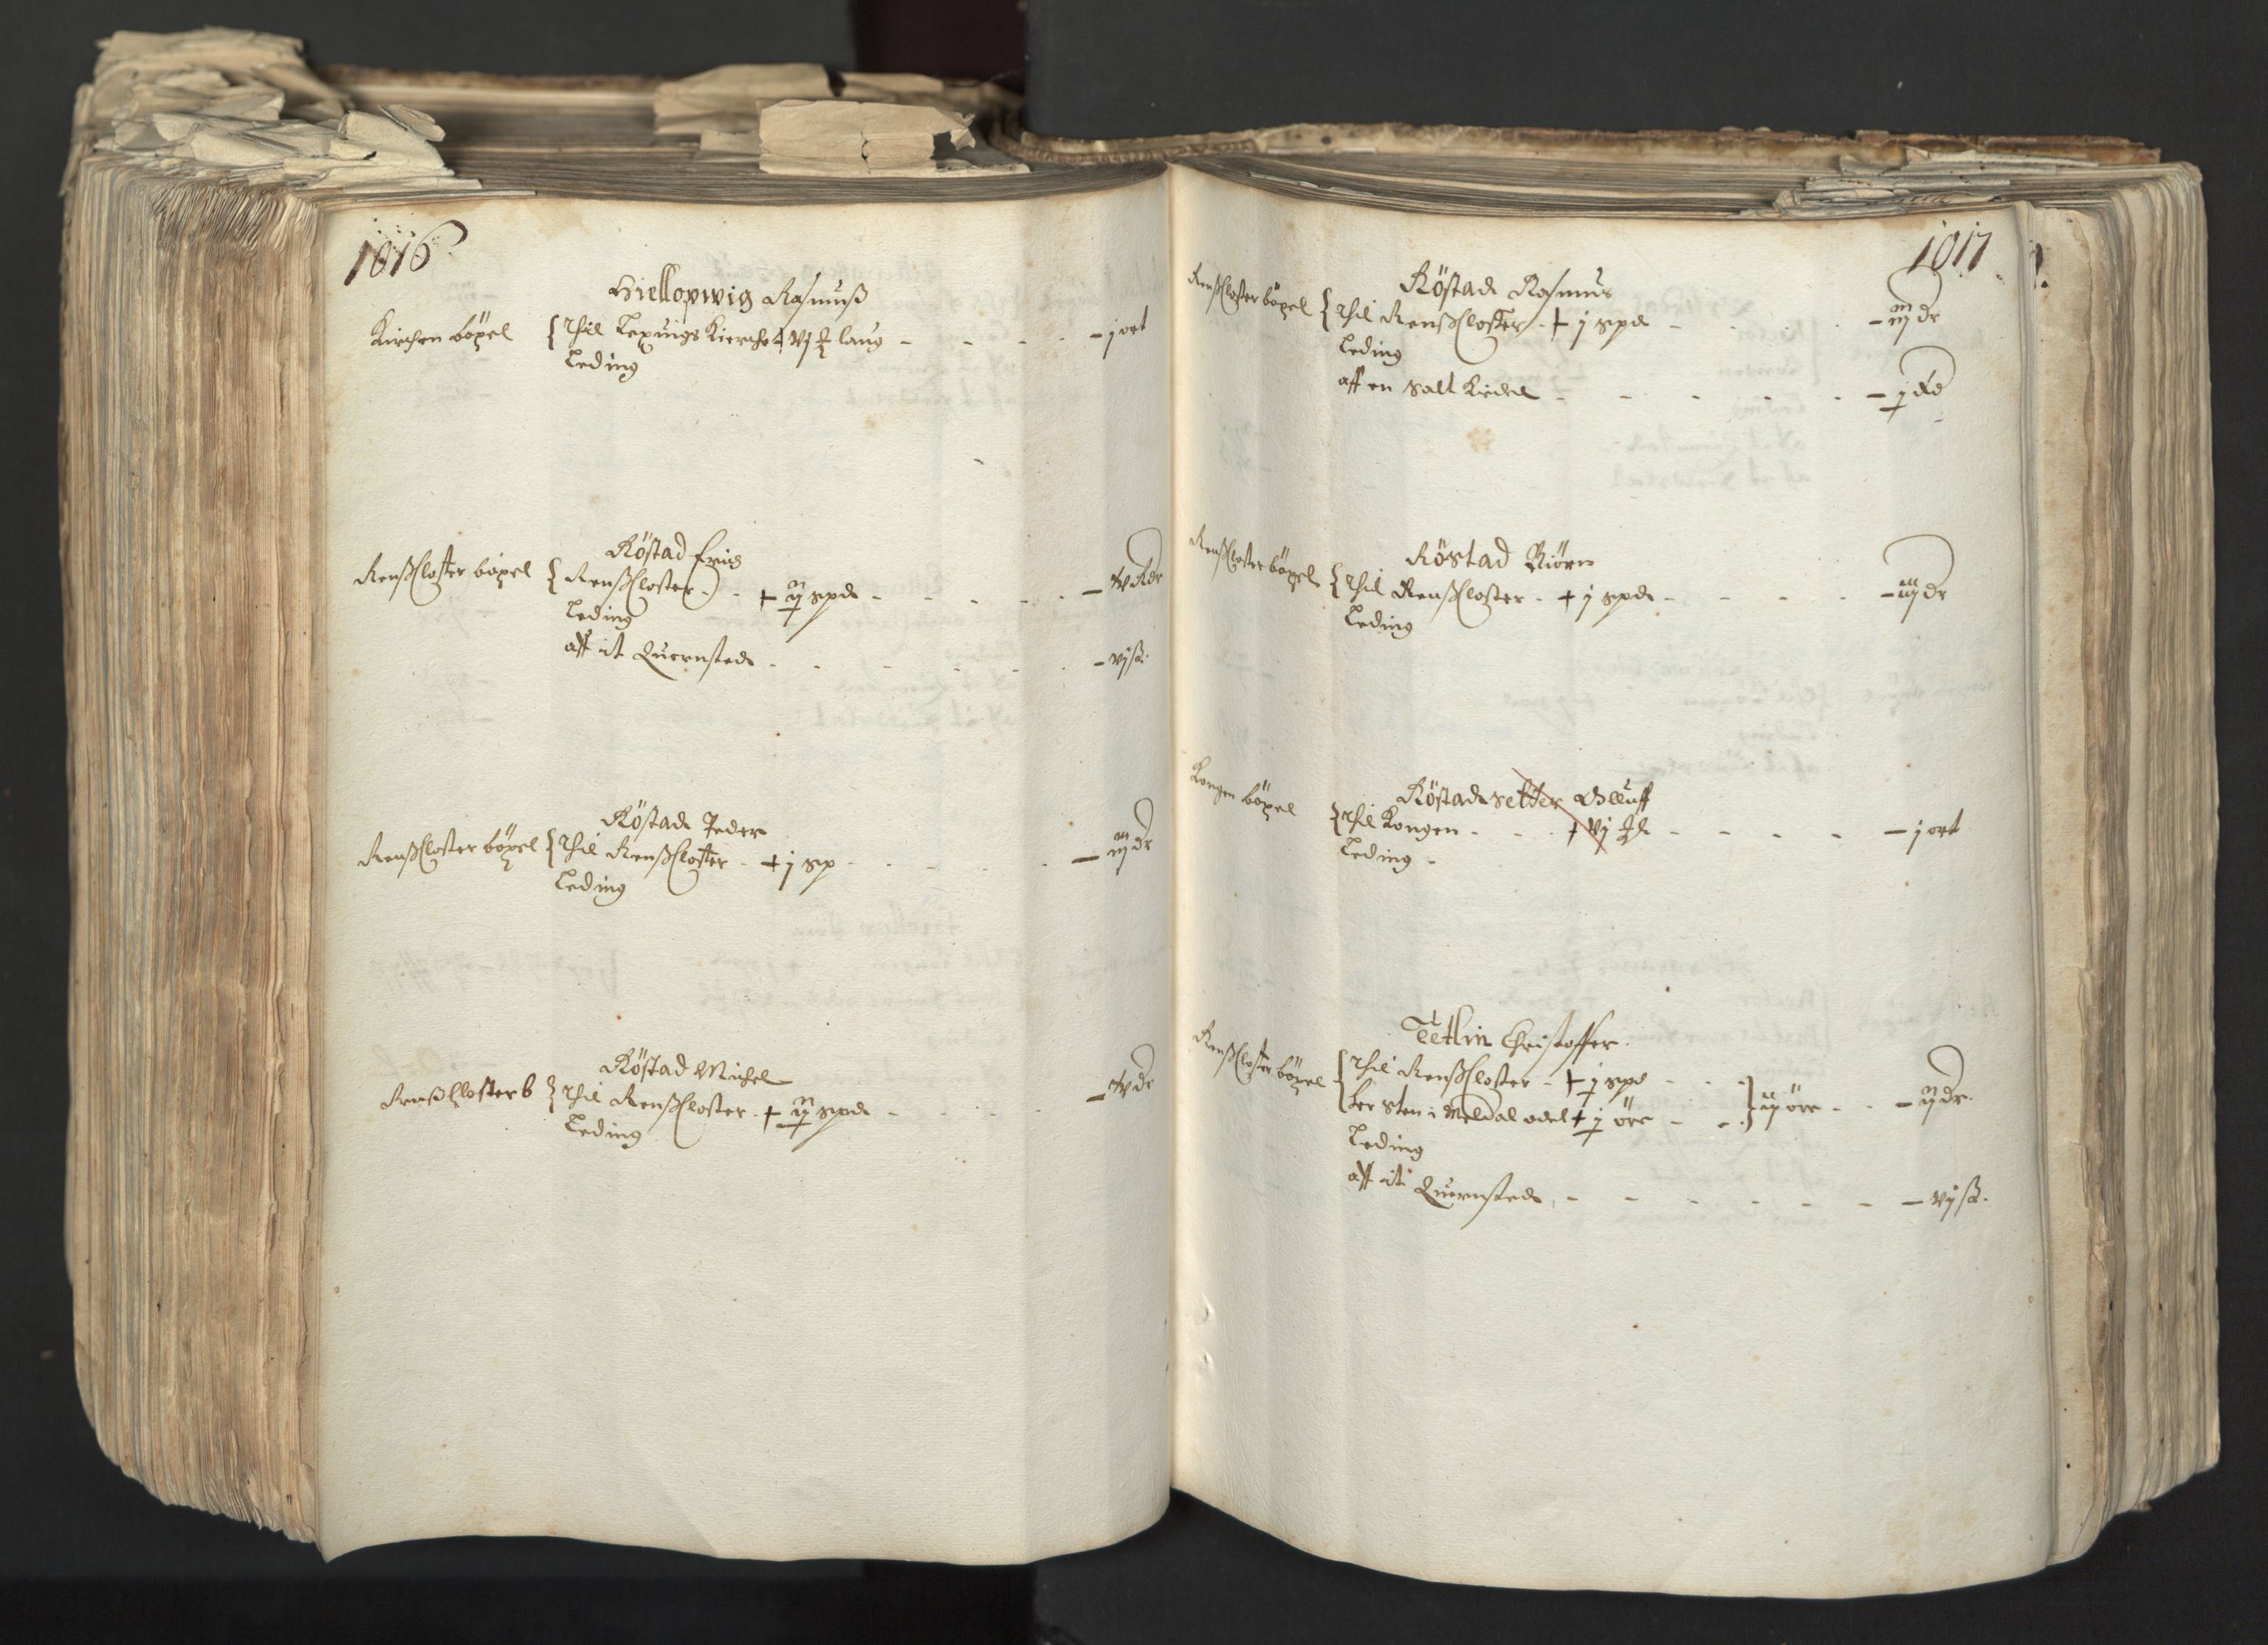 1016
Hiellopwig Rasmuß
Kirchen böxel { Thil Lexuigs Kierche + vj laug - - - - j ort
Leding
Röstad Erig
Renßkloster böxel { Renßkloster - + ij spd - - - - - - iv dr
Leding
aff it Quernsted - - - - - - - vj ß.
Röstad Peder
Renßkloster böxel { Thil Renßkloster - + j sp - - - - - - iij dr
Leding
Röstad Michel
Renßkloster b { Thil Renßkloster - + ij spd - - - - - iv dr
Leding
1017
Röstad Rasmus
Renßkloster böxel { Thil Renßkloster - + j spd - - - - iij dr
Leding
aff en Salt Kedel - - - - - - - j
Röstad Biörn
Renßkloster böxel { Thil Renßkloster - + j spd - - - - - iij dr
Leding
Röstad setter Olluff
Kongen böxel { Thil Kongen - - - + vj - - - - - j ort
Leding -
Tetlin Christoffer.
Renßkloster böxel { Thil Renßkloster - + j spd - - -
Her Sten i Meldal odel + j öre - - } ij öre - - - ij dr.
Leding
aff it Quernsted - - - - - - - vj ß.